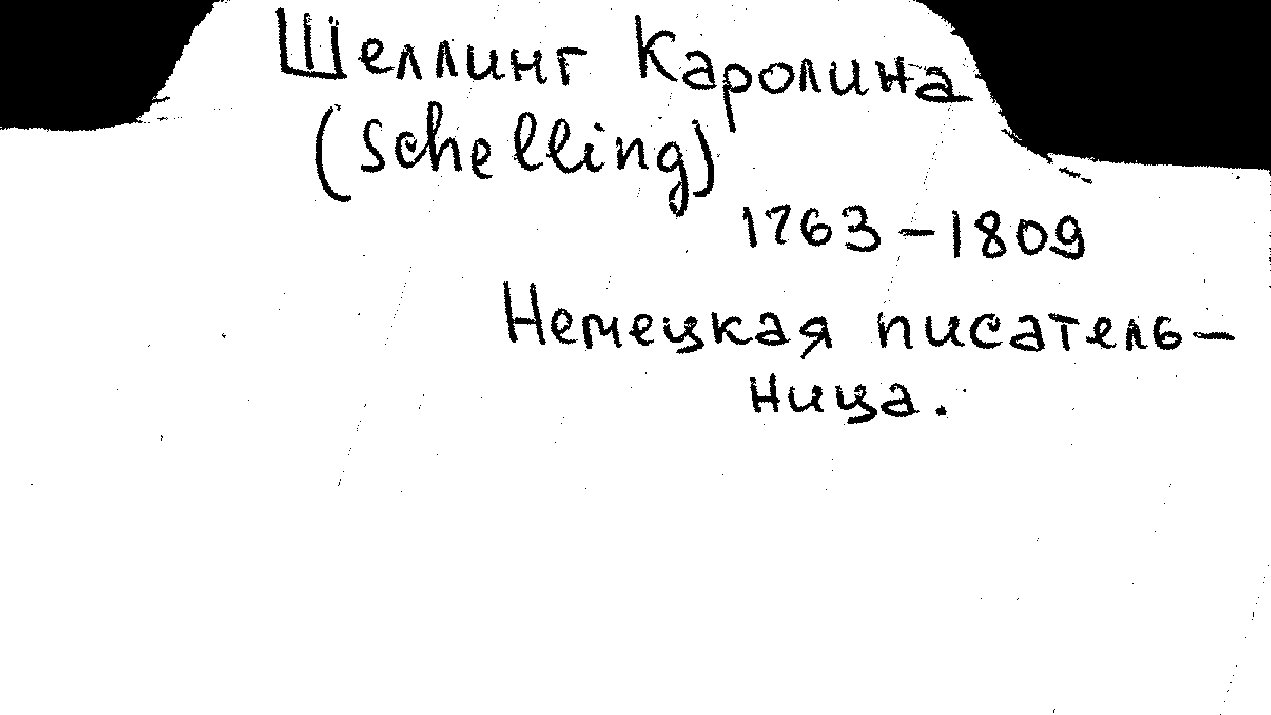 Шеллинг Каролина
(Schelling)
1763-1809
Немецкая писатель-
ница.